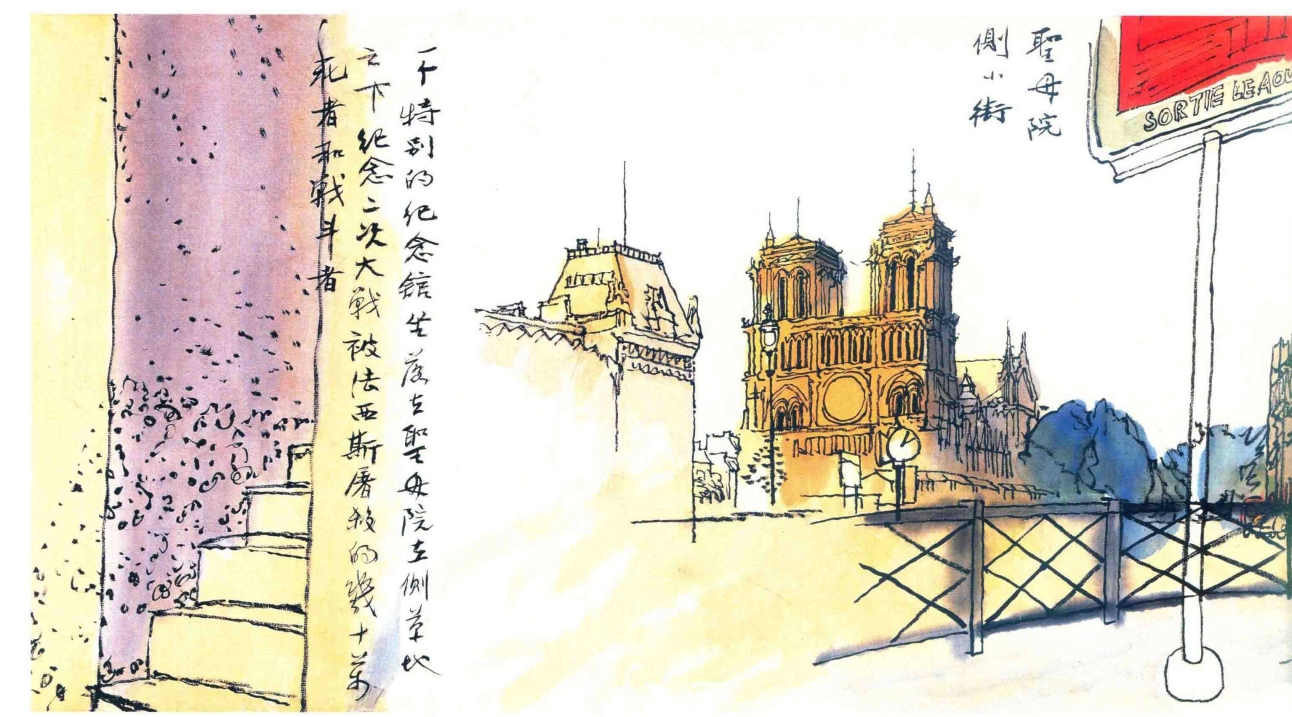 一个特别的纪念馆坐落在聖母院左側草地
之下纪念二次大戰被法西斯屠殺的幾十萬
死者和戰斗者
聖母院
側小街
SORTIE LE AOU